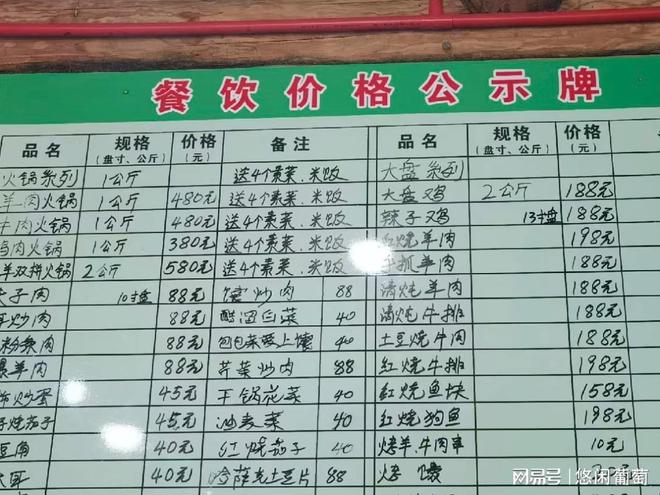 餐饮价格公示牌
品名 规格(盘寸、公斤) 价格(元) 备注 品名 规格(盘寸、公斤) 价格(元)
火锅系列 1公斤 送4个素菜.米饭 大盘系列
羊肉火锅 1公斤 480元 送4个素菜.米饭 大盘鸡 2公斤 188元
牛肉火锅 1公斤 480元 送4个素菜.米饭 辣子鸡 13寸盘 188元
鸡肉火锅 1公斤 380元 送4个素菜.米饭 红烧羊肉 198元
羊双拼火锅 2公斤 580元 送4个素菜.米饭 手抓羊肉 188元
子肉 10寸盘 88元 馕炒肉 88 清炖羊肉 188元
炒肉 88元 醋溜白菜 40 清炖牛排 188元
粉条肉 88元 40 土豆烧牛肉 188元
羊肉 88元 芹菜炒肉 88 红烧牛排 198元
炒蛋 45元 干锅花菜 40 红烧鱼块 158元
烧茄子 45元 菜 40 红烧狗鱼 198元
豆角 40元 红烧茄子 40 烤羊.牛肉串 10元
耳 40元 哈萨克土豆片 88 烤馕
网易号 | 悠闲葡萄